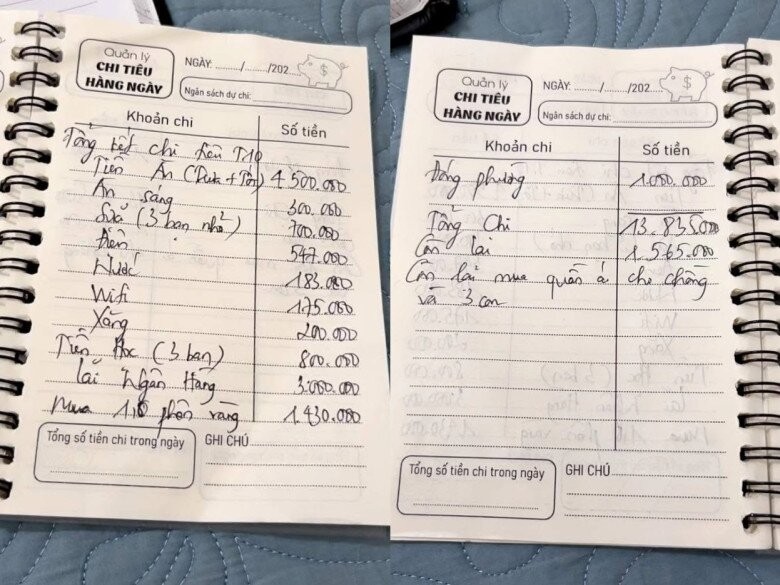 Quản lý
CHI TIÊU
HÀNG NGÀY
NGÀY: ......../......../202....
Ngân sách dự chi:
Khoản chi Số tiền
Tổng kết chi tiêu T10
Tiền Ăn (Trưa + Tối) 4.500.000
Ăn sáng 300.000
Sữa (3 bạn nhỏ) 700.000
Điện 547.000
Nước 183.000
Wifi 175.000
Xăng 200.000
Tiền Học (3 bạn) 800.000
Lãi Ngân Hàng 3.000.000
Mua phân vàng 1.430.000
Tổng số tiền chi trong ngày
GHI CHÚ
Quản lý
CHI TIÊU
HÀNG NGÀY
NGÀY: ......../......../202....
Ngân sách dự chi:
Khoản chi Số tiền
Đóng phường 1.000.000
Tổng Chi 13.835.000
Còn lại 1.565.000
Còn lại mua quần á cho chồng
và 3 con
Tổng số tiền chi trong ngày
GHI CHÚ